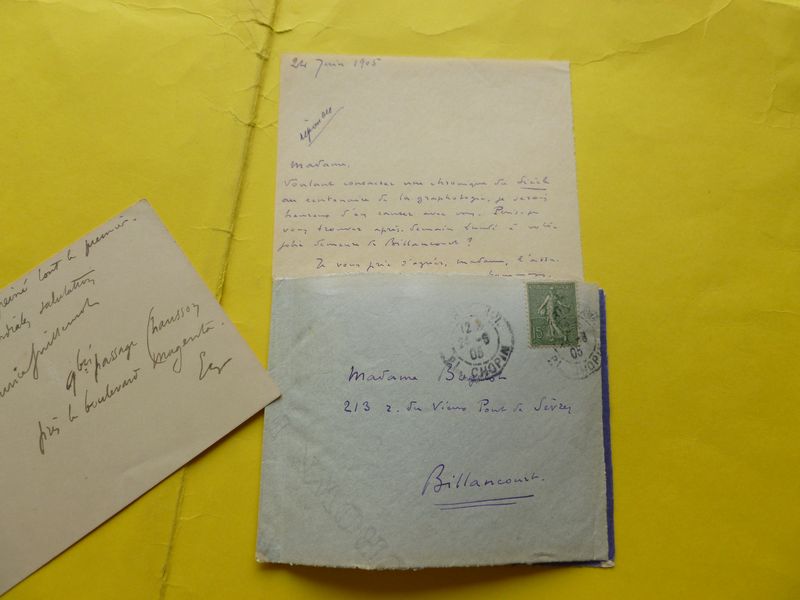 24 Juin 1905
réponse
Madame,
Voulant consacrer une chronique du Siècle
au centenaire de la graphologie, je serais
heureux d'en causer avec vous. Puis-je
vous trouver après-demain lundi à votre
jolie demeure de Billancourt ?
Je vous prie d'agréer, madame, l'assu.
hommages.
15
CHOPIN
CHOPIN
Madame
213 r. du Vieux Pont de Sèvres
Billancourt.
tout le premier.
salutations
9 bis passage Chausson
près le boulevard Magenta.